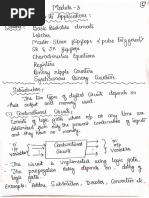 Module-3
& its Applications:
Basic Bistable element
Latches
Master-Slave flipflops (pulse triggered)
SR & JK flipflops
Characteristic Equations
Registers
Binary ripple Counters
Synchronous Binary Counters
Introduction:
The two types of digital Circuits depends on
their output and memory used.
Combinational Circuits:
Consists of logic gates whose o/p at any time are
determined only from the present combination of inputs
and they have no memory.
n i/p
variables
Combinational
Circuits
m o/p
variables
The circuit is implemented using logic gates.
The propagation delay depends on delay of
logic gates.
Example: Adders, Subtractors, Decoder, Converters etc.